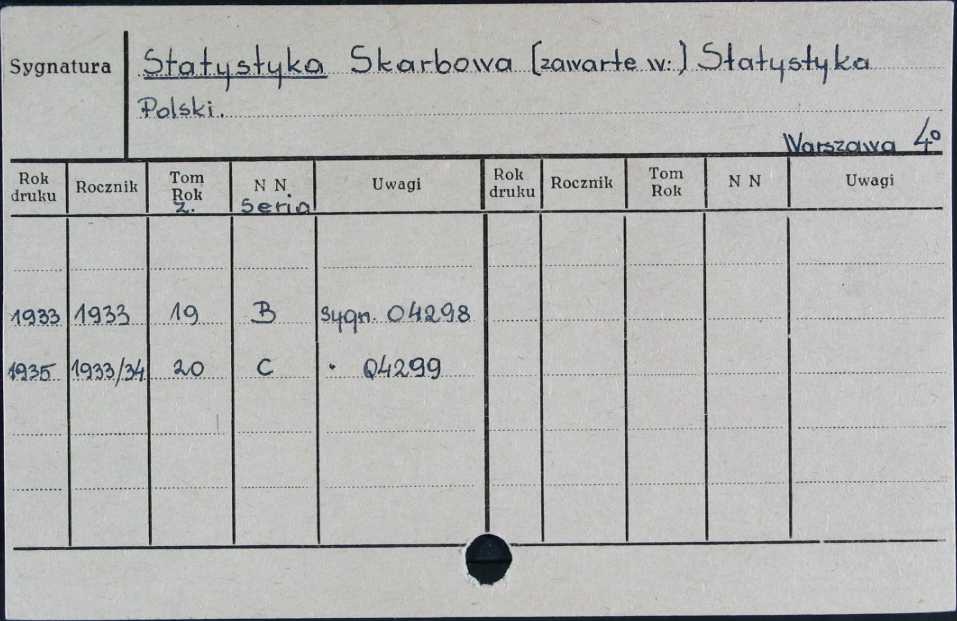 Sygnatura Statystyka Skarbowa [zawarte w:] Statystyka
Polski.
Warszawa 4º
Rok druku Rocznik Tom Rok z. N N. seria Uwagi Rok druku Rocznik Tom Rok N N Uwagi
1933 1933 19 B sygn. 04298
1935 1933/34 20 C " 04299